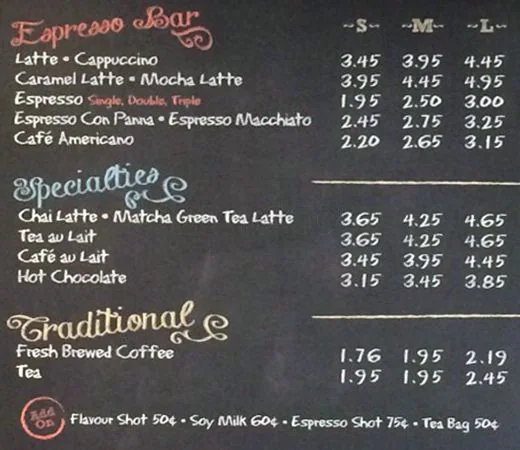 Espresso Bar ~S~ ~M~ ~L~
Latte • Cappuccino 3.45 3.95 4.45
Caramel Latte • Mocha Latte 3.95 4.45 4.95
Espresso Single, Double, Triple 1.95 2.50 3.00
Espresso Con Panna • Espresso Macchiato 2.45 2.75 3.25
Café Americano 2.20 2.65 3.15
Specialties
Chai Latte • Matcha Green Tea Latte 3.65 4.25 4.65
Tea au Lait 3.65 4.25 4.65
Café au Lait 3.45 3.95 4.45
Hot Chocolate 3.15 3.45 3.85
Traditional
Fresh Brewed Coffee 1.76 1.95 2.19
Tea 1.95 1.95 2.45
Add On Flavour Shot 50¢ • Soy Milk 60¢ • Espresso Shot 75¢ • Tea Bag 50¢